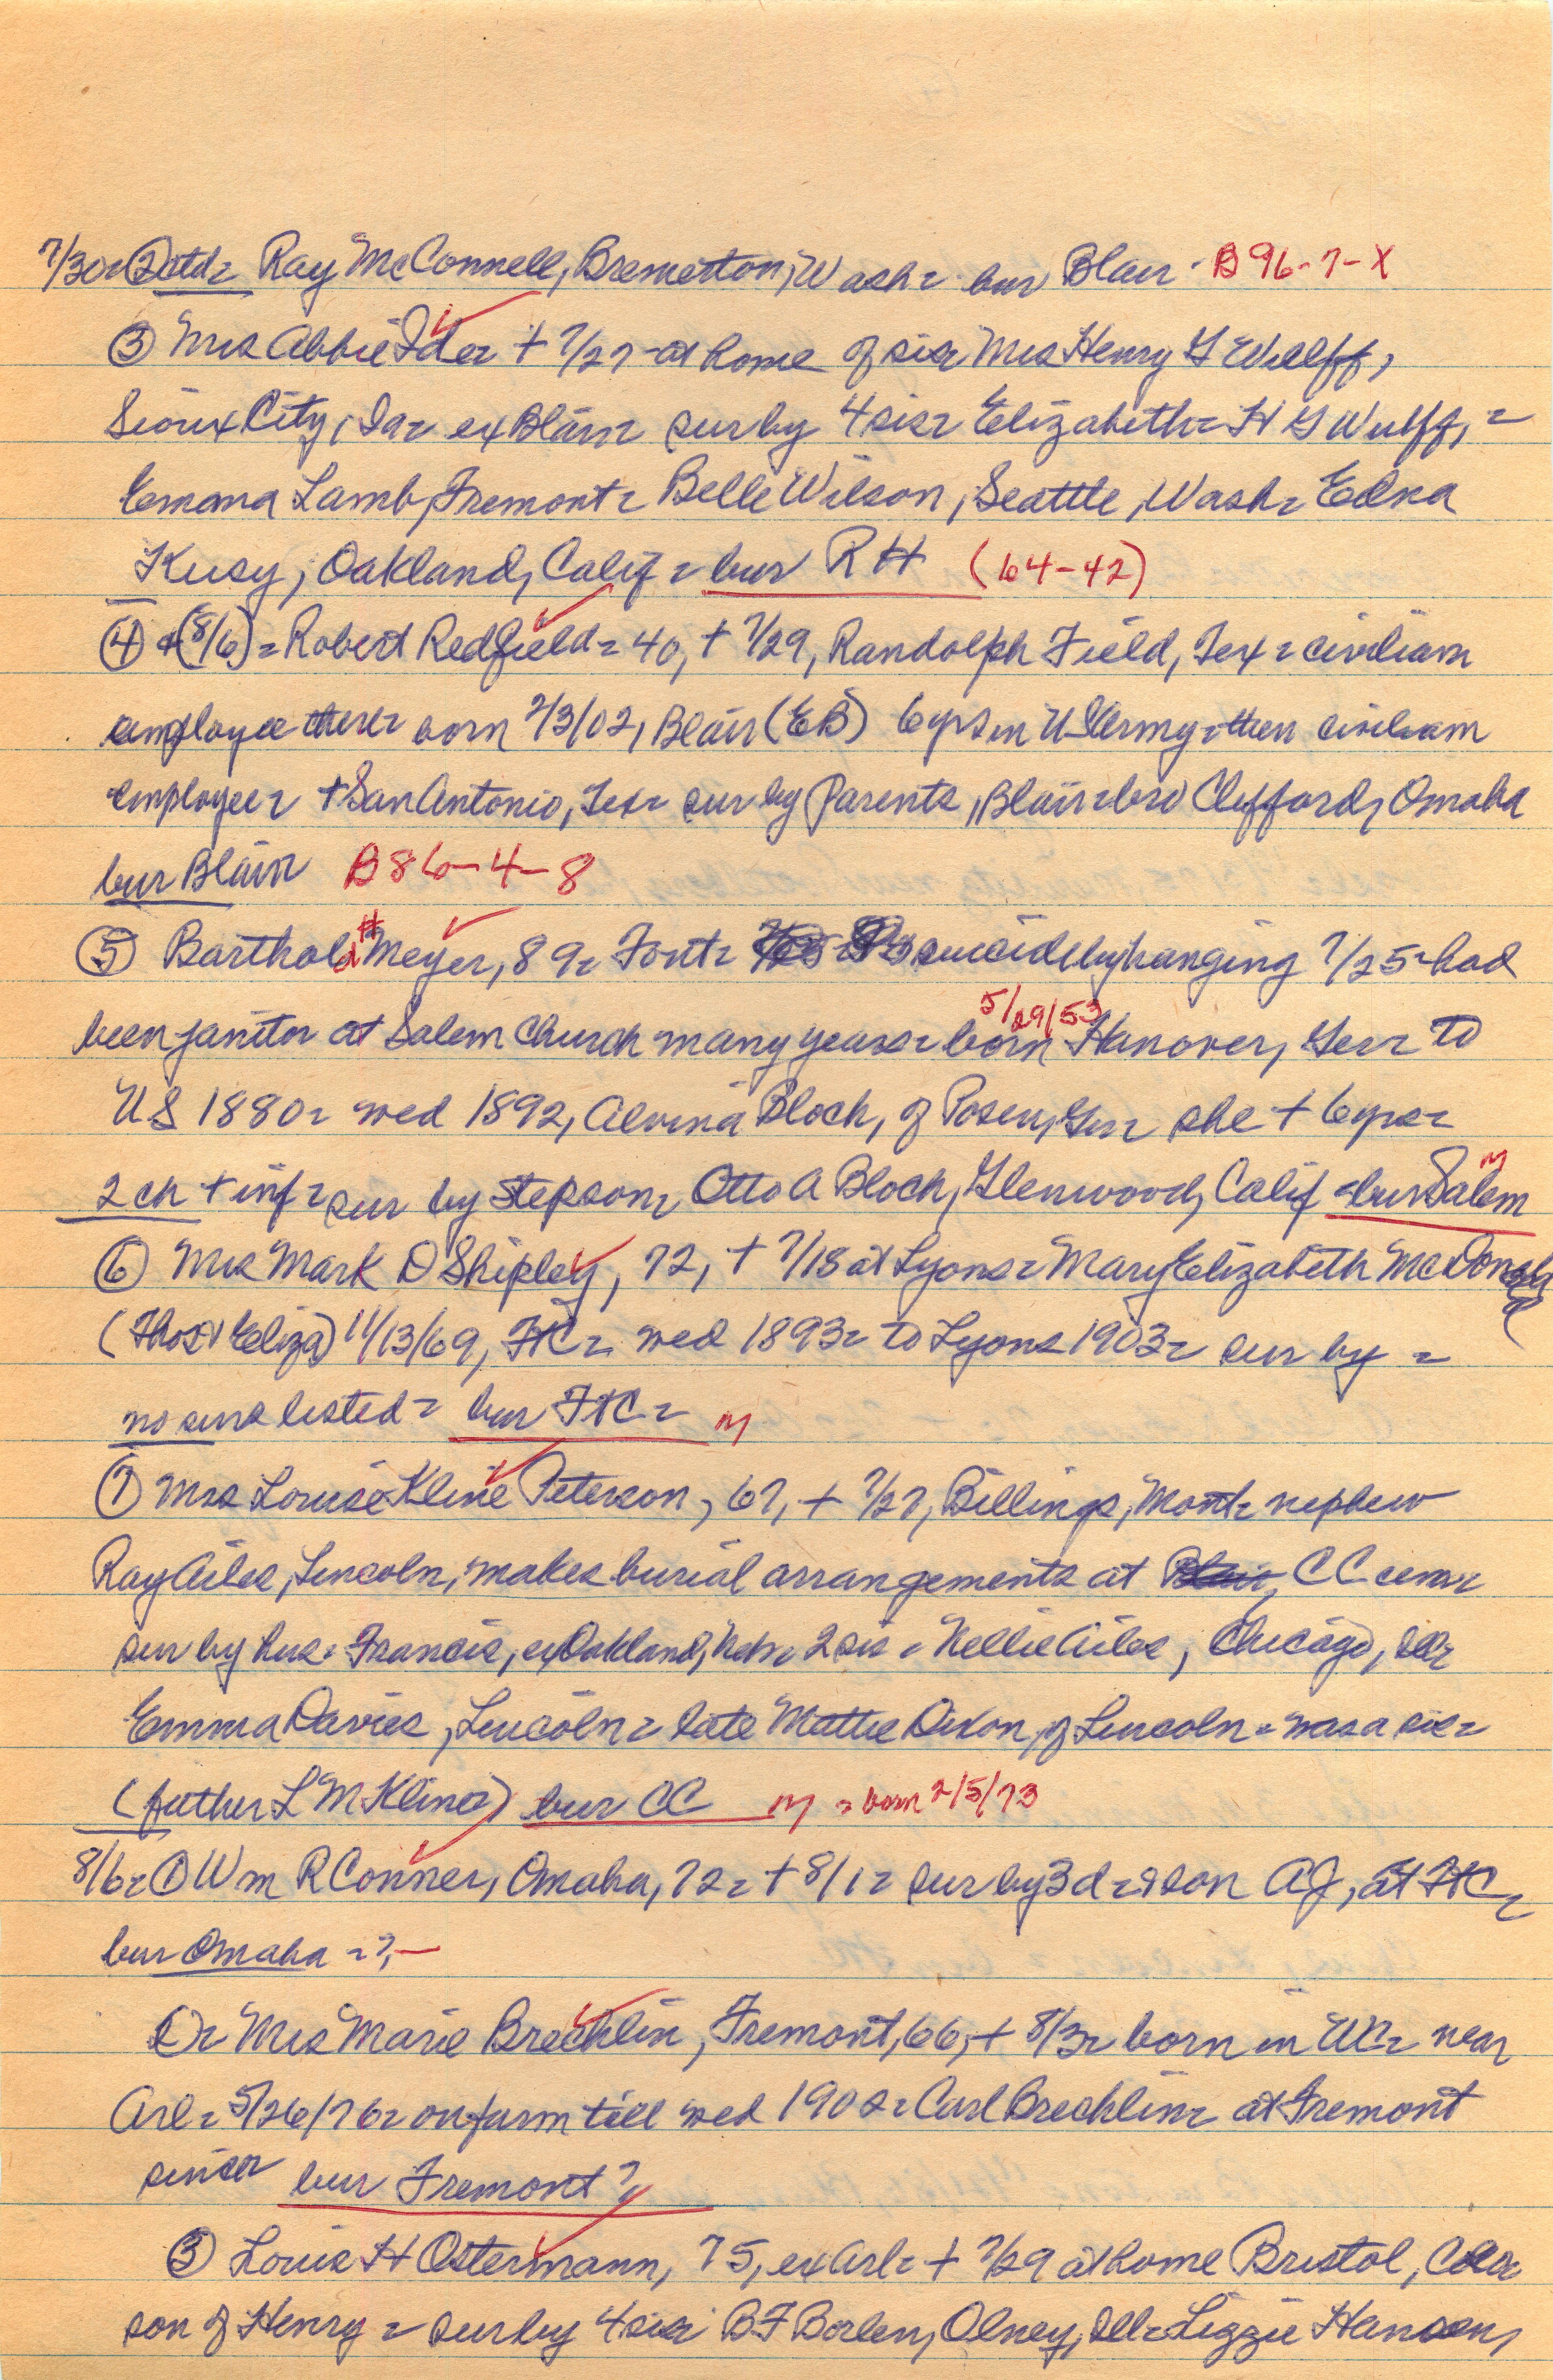 7/30= ② ctd= Ray McConnell, Bremerton, Wash= bur Blair B 96-7-X
③ Mrs Abbie Ide= + 7/27 at home of sis= Mrs Henry G Wulff,
Sioux City, Ia= ex Blair= sur by 4 sis= Elizabeth= H G Wulff, =
Emma Lamb, Fremont= Belle Wilson, Seattle, Wash= Edna
Kusy, Oakland, Calif= bur RH (64-42)
④ & (8/6)= Robert Redfield= 40, + 7/29, Randolph Field, Tex= civiliam
employee there= born 7/3/02, Blair (EB) 6 yrs in US Army= then civiliam
employee= + San Antonio, Tex= sur by Parents, Blair= bro Clifford, Omaha
bur Blair B 86-4-8
⑤ Barthold H Meyer, 89= Font= suicide by hanging 7/25= had
been janitor at Salem Church many years= born 5/29/53 Hanover, Ger= to
US 1880= wed 1892, Alvina Bloch, of Posen, Ger= she + 6 yrs=
2 ch + inf= sur by stepson= Otto A Bloch, Glenwood, Calif= bur Salem m
⑥ Mrs Mark D Shipley, 72, + 7/18 at Lyons= Mary Elizabeth McDonald
(Thos & Eliza) 11/13/69, FtC= wed 1893= to Lyons 1903= sur by =
no surs listed= bur FtC= m
⑦ Mrs Louise Kline Peterson, 67, + 7/27, Billings, Mont= nephew
Ray Ailes, Lincoln, makes burial arrangements at Blair, CC cem=
sur by hus= Francis, ex Oakland, Neb= 2 sis= Nellie Ailes, Chicago, Ill=
Emma Davies, Lincoln= late Mattie Dixon, of Lincoln= was a sis=
(father L M Kline) bur CC m = born 2/5/73
8/6= ① Wm R Conner, Omaha, 72= + 8/1= sur by 3 d= & son AJ, at FtC=
bur Omaha =?,—
②= Mrs Marie Brechlin, Fremont, 66, + 8/3= born in WC= near
Arl= 5/26/76= on farm till wed 1902= Carl Brechlin= at Fremont
since= bur Fremont?
③ Louis H Ostermann, 75, ex Arl= + 7/29 at home Bristol, Colo=
son of Henry= sur by 4 sis= B F Borlen, Olney, Ill= Lizzie Hansen,